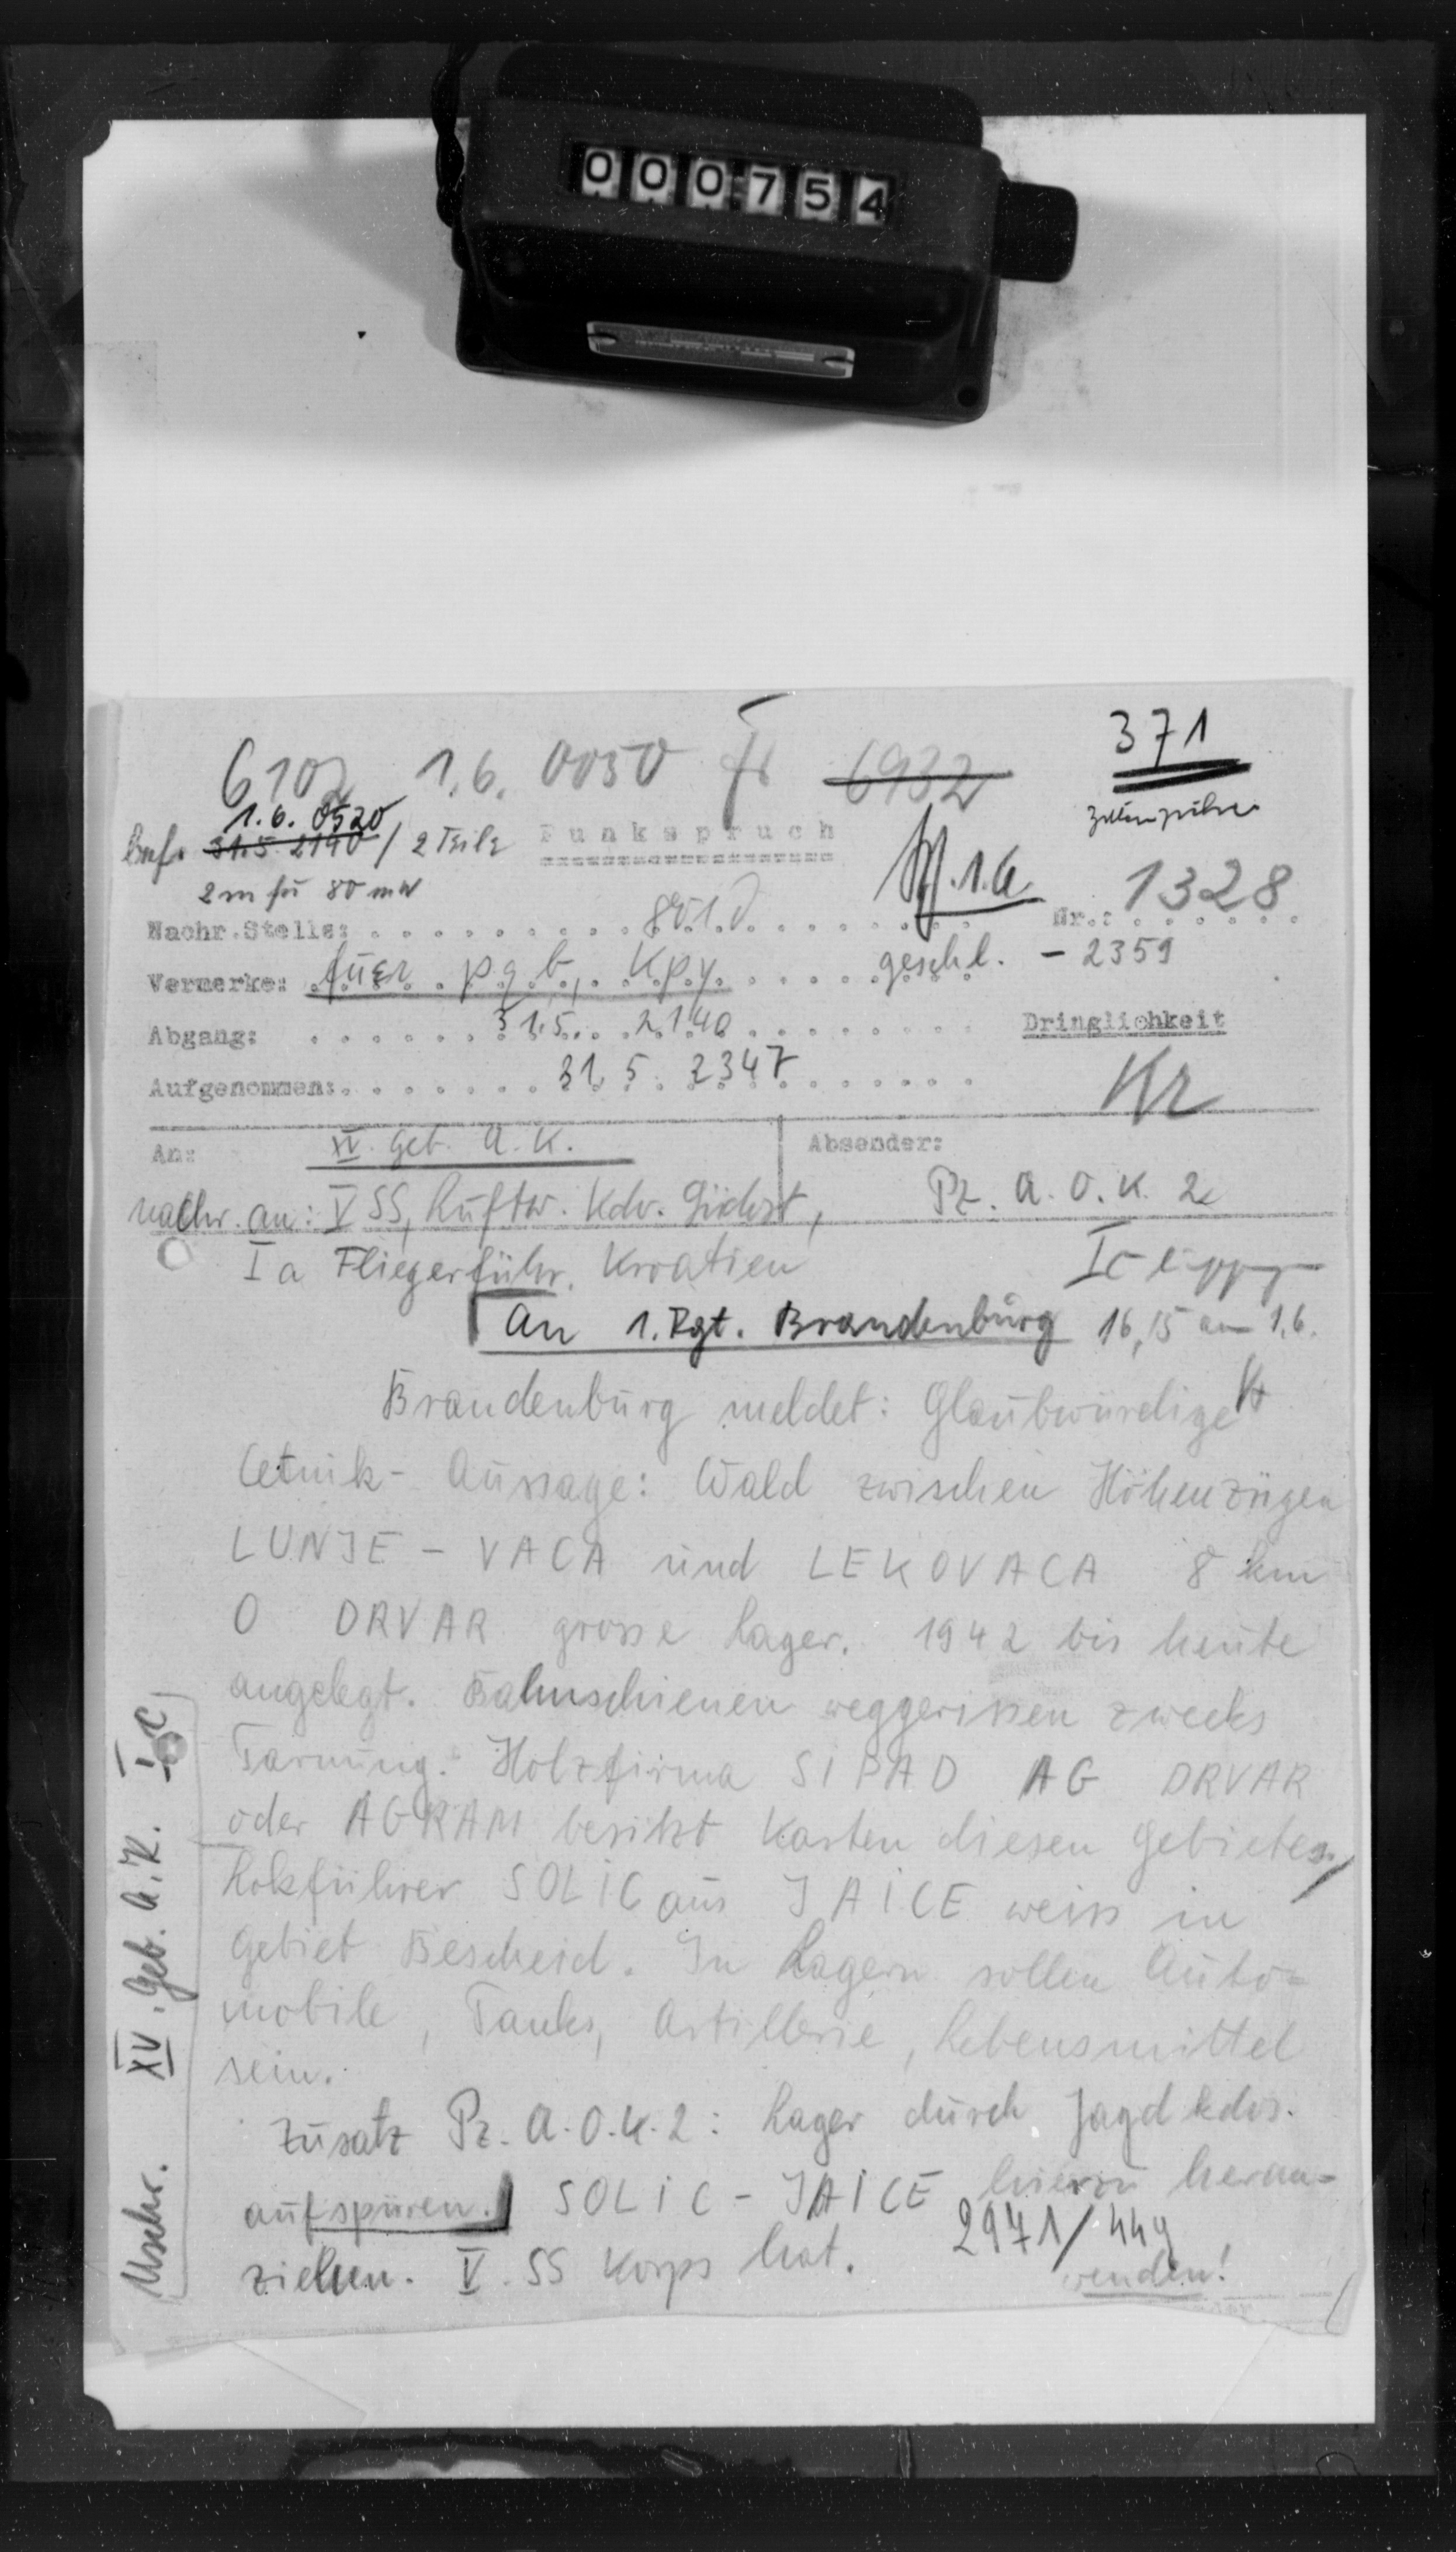 000754
371
6102 1.6. 0050 6932
1.6. 0520
31.5. 2140 / 2 Teile
Funkspruch
1328
Nachr.Stelle: 801 Nr.:
Vermerke: fuer pqb, kpy. geschl. - 2359
Abgang: 31.5. 2140 Dringlichkeit
Aufgenommen: 31.5. 2347 Kr
An: XV. Geb. A. K. Absender:
nachr. an: V SS, Luftw. Kdo. Südost, Pz. A. O. K. 2
Ia Fliegerführ. Kroatien Ic
An 1. Rgt. Brandenburg 16,15 am 1.6.
Brandenburg meldet: Glaubwürdige
Cetnik- Aussage: Wald zwischen Höhenzügen
LUNJE - VACA und LEKOVACA 8 km
O DRVAR grosse Lager. 1942 bis heute
angelegt. Bahnschienen weggerissen zwecks
Tarnung. Holzfirma SIPAD AG DRVAR
oder AGRAM besitzt Karten diesen Gebietes.
Lokführer SOLIC aus JAICE weiss in
Gebiet Bescheid. In Lagern sollen Auto=
mobile, Tanks, Artillerie, Lebensmittel
sein.
Zusatz Pz. A. O. K. 2: Lager durch Jagdkdos.
aufspüren. SOLIC - JAICE hierzu heran=
ziehen. V. SS Korps hat.
2971/44g
wenden!
XV. Geb. A. K. Ic